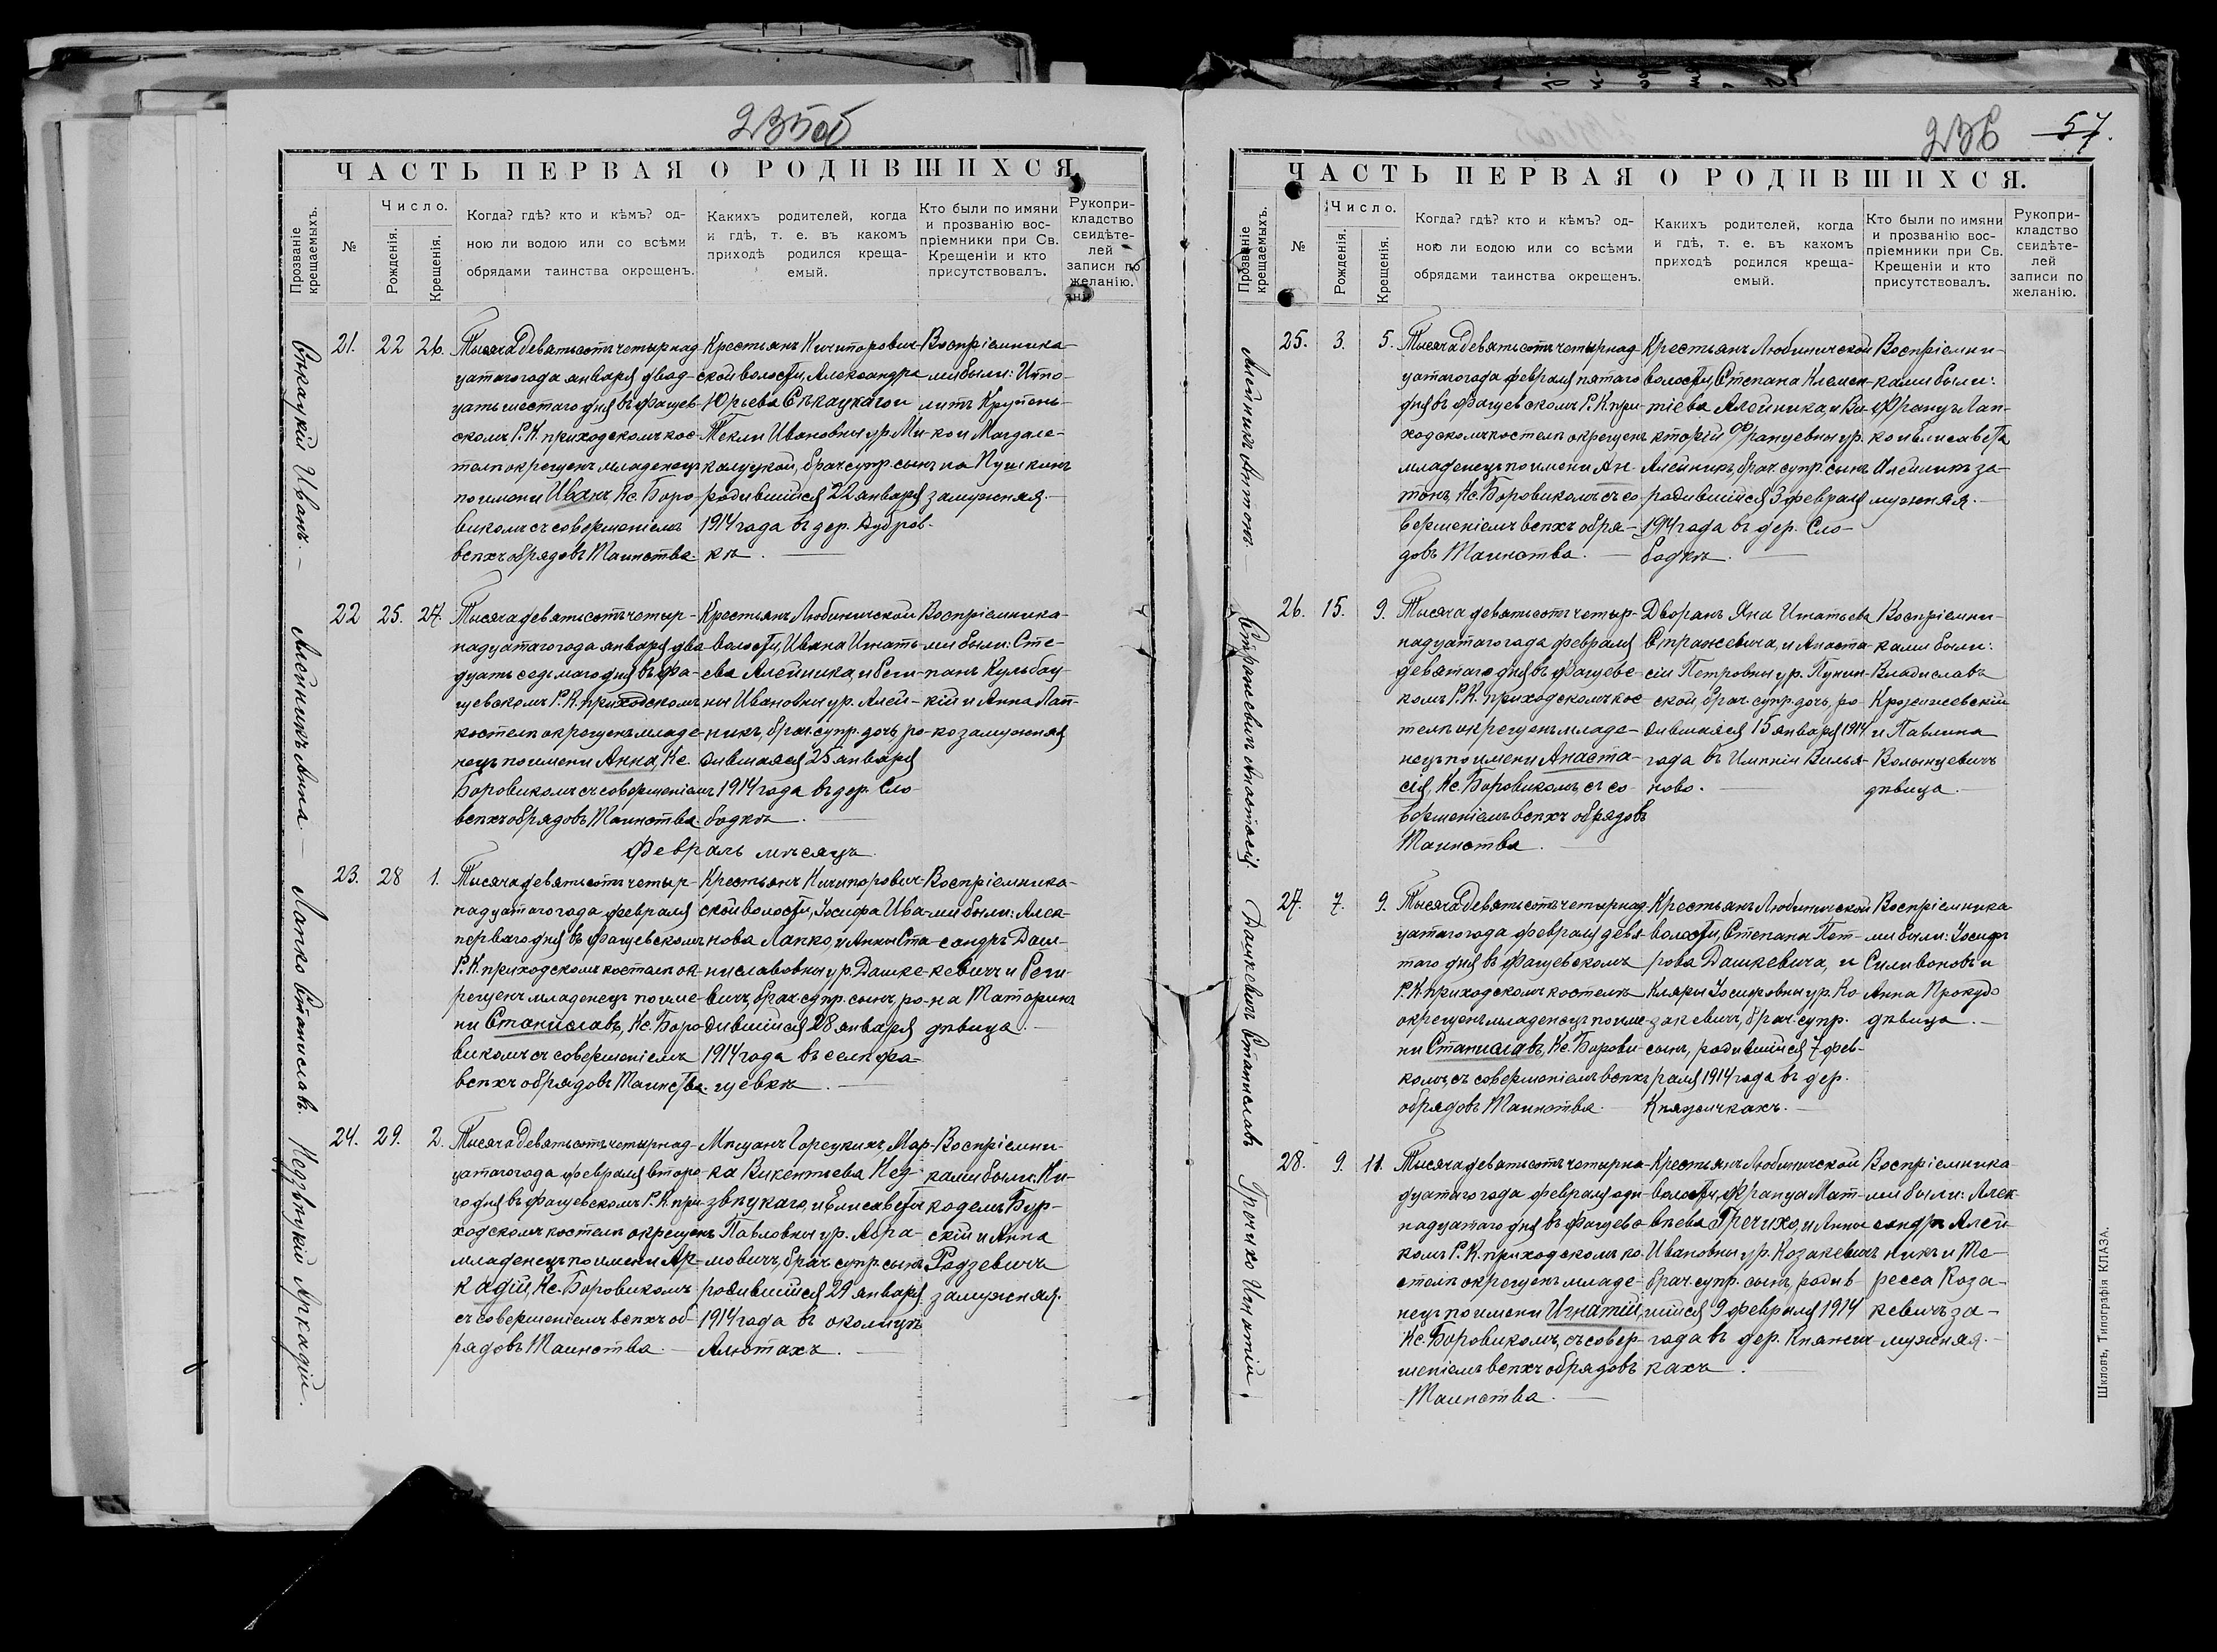 235об
ЧАСТЬ ПЕРВАЯ О РОДИВШИХСЯ
Прозваніе крещаемыхъ.
№
Число.
Рожденія.
Крещенія.
Когда? гдѣ? кто и кѣмъ? од-
ною ли водою или со всѣми
обрядами таинства окрещенъ.
Какихъ родителей, когда
и гдѣ, т. е. въ какомъ
приходѣ родился креща-
емый.
Кто были по имяни
и прозванію вос-
пріемники при Св.
Крещеніи и кто
присутствовалъ.
Рукопри-
кладство
свидѣте-
лей
записи по
желанію.
Сѣкацкій Иванъ.
21. 22 26.
Тысяча девятьсотъ четырнад-
цатаго года января двад-
цать шестаго дня въ Фащев-
скомъ Р. К. приходскомъ кос-
телѣ окрещенъ младенецъ
по имени Иванъ, Кс. Боро-
викомъ съ совершеніемъ
всѣхъ обрядовъ Таинства.
Крестьянъ Кичипорович-
ской волости, Александра
Юрьева Сѣкацкаго и
Теклии Ивановны ур. Ми-
калуцкой, брач. супр. сынъ
родившійся 22 января
1914 года въ дер. Дубров-
кѣ.
Воспріемника-
ми были: Иппо-
литъ Крупень-
ко и Магдале-
на Пушкинъ
замужняя.
Алейникъ Анна
22 25. 27.
Тысяча девятьсотъ четыр-
надцатаго года января два-
дцать седьмаго дня въ Фа-
щевскомъ Р. К. приходскомъ
костелѣ окрещенъ младе-
нецъ по имени Анна, Кс.
Боровикомъ съ совершеніемъ
всѣхъ обрядовъ Таинства.
Крестьянъ Любиничской
волости, Ивана Игнать-
ева Алейника, и Реги-
ны Ивановны ур. Алей-
никъ, брач. супр. дочь, ро-
дившаяся 25 января
1914 года въ дер. Сло-
бодкѣ.
Воспріемника-
ми были: Сте-
панъ Кульбац-
кій и Анна Лап-
ко замужняя
Февраль мѣсяцъ.
Лапко Станиславъ.
23. 28 1.
Тысяча девятьсотъ четыр-
надцатаго года февраля
перваго дня въ Фащевскомъ
Р. К. приходскомъ костелѣ ок-
рещенъ младенецъ по име-
ни Станиславъ, Кс. Боро-
викомъ съ совершеніемъ
всѣхъ обрядовъ Таинства.
Крестьянъ Кичипорович-
ской волости, Іосифа Ива-
нова Лапко, и Анны Ста-
ниславовны ур. Дашке-
вичъ, брач. супр. сынъ, ро-
дившійся 28 января
1914 года въ селѣ Фа-
щевкѣ.
Воспріемника-
ми были: Алек-
сандръ Даш-
кевичъ и Реги-
на Маторинъ
дѣвица.
Недзвѣцкій Аркадій.
24. 29. 2.
Тысяча девятьсотъ четырнад-
цатаго года февраля второ-
го дня въ Фащевскомъ Р. К. при-
ходскомъ костелѣ окрещенъ
младенецъ по имени Ар-
кадій, Кс. Боровикомъ
съ совершеніемъ всѣхъ об-
рядовъ Таинства.
Мѣщанъ Горецкихъ, Мар-
ка Викентьева Нед-
звѣцкаго, и Елисаветы
Павловны ур. Абра-
мовичъ, брач. супр. сынъ
родившійся 29 января
1914 года въ околицѣ
Алютахъ.
Воспріемни-
ками были: Ни-
кодемъ Бур-
скій и Анна
Радзевичъ
замужняя.
236 57.
ЧАСТЬ ПЕРВАЯ О РОДИВШИХСЯ.
Прозваніе крещаемыхъ.
№
Число.
Рожденія.
Крещенія.
Когда? гдѣ? кто и кѣмъ? од-
ною ли водою или со всѣми
обрядами таинства окрещенъ.
Какихъ родителей, когда
и гдѣ, т. е. въ какомъ
приходѣ родился креща-
емый.
Кто были по имяни
и прозванію вос-
пріемники при Св.
Крещеніи и кто
присутствовалъ.
Рукопри-
кладство
свидѣте-
лей
записи по
желанію.
Алейникъ Антонъ.
25. 3. 5.
Тысяча девятьсотъ четырнад-
цатаго года февраля пятаго
дня въ Фащевскомъ Р. К. при-
ходскомъ костелѣ окрещенъ
младенецъ по имени Ан-
тонъ, Кс. Боровикомъ съ со-
вершеніемъ всѣхъ обря-
довъ Таинства.
Крестьянъ Любиничской
волости, Степана Клемен-
тіева Алейника, и Ви-
кторіи Францевны ур.
Алейникъ, брач. супр. сынъ
родившійся 3 февраля
1914 года въ дер. Сло-
бодкѣ.
Воспріемни-
ками были:
Францъ Лап-
ко и Елисавета
Алейникъ за-
мужняя.
Стражевичъ Анастасія.
26. 15. 9.
Тысяча девятьсотъ четыр-
надцатаго года февраля
девятаго дня въ Фащевс-
комъ Р. К. приходскомъ кос-
телѣ окрещенъ младе-
нецъ по имени Анаста-
сія, Кс. Боровикомъ съ со-
вершеніемъ всѣхъ обрядовъ
Таинства.
Дворянъ Яна Игнатьева
Стражевича, и Анаста-
сіи Петровны ур. Пунин-
ской, брач. супр. дочь, ро-
дившаяся 15 января 1914
года въ Имѣніи Вилья-
ново.
Воспріемни-
ками были:
Владиславъ
Крожишевскій
и Павлина
Волынцевичъ
дѣвица.
Дашкевичъ Станиславъ
27. 7. 9.
Тысяча девятьсотъ четырнад-
цатаго года февраля девя-
таго дня въ Фащевскомъ
Р. К. приходскомъ костелѣ
окрещенъ младенецъ по име-
ни Станиславъ, Кс. Борови-
комъ, съ совершеніемъ всѣхъ
обрядовъ Таинства.
Крестьянъ Любиничской
волости, Степана Пет-
рова Дашкевича, и
Клары Іосифовны ур. Ко-
закевичъ, брач. супр.
сынъ, родившійся 7 фев-
раля 1914 года въ дер.
Княжичкахъ.
Воспріемника-
ми были: Іосифъ
Силивоновъ и
Анна Прокудо
дѣвица.
Гречихо Игнатій.
28. 9. 11.
Тысяча девятьсотъ четырна-
дцатаго года февраля оди-
надцатаго дня въ Фащевс-
комъ Р. К. приходскомъ ко-
стелѣ окрещенъ младе-
нецъ по имени Игнатій,
Кс. Боровикомъ, съ совер-
шеніемъ всѣхъ обрядовъ
Таинства.
Крестьянъ Любиничской
волости, Франца Мат-
вѣева Гречихо, и Анны
Ивановны ур. Козакевичъ
брач. супр. сынъ, родив-
шійся 9 февраля 1914
года въ дер. Княжич-
кахъ.
Воспріемника-
ми были: Алек-
сандръ Алей-
никъ и Те-
ресса Коза-
кевичъ за-
мужняя.
Шкловъ, Типографія КЛАЗА.